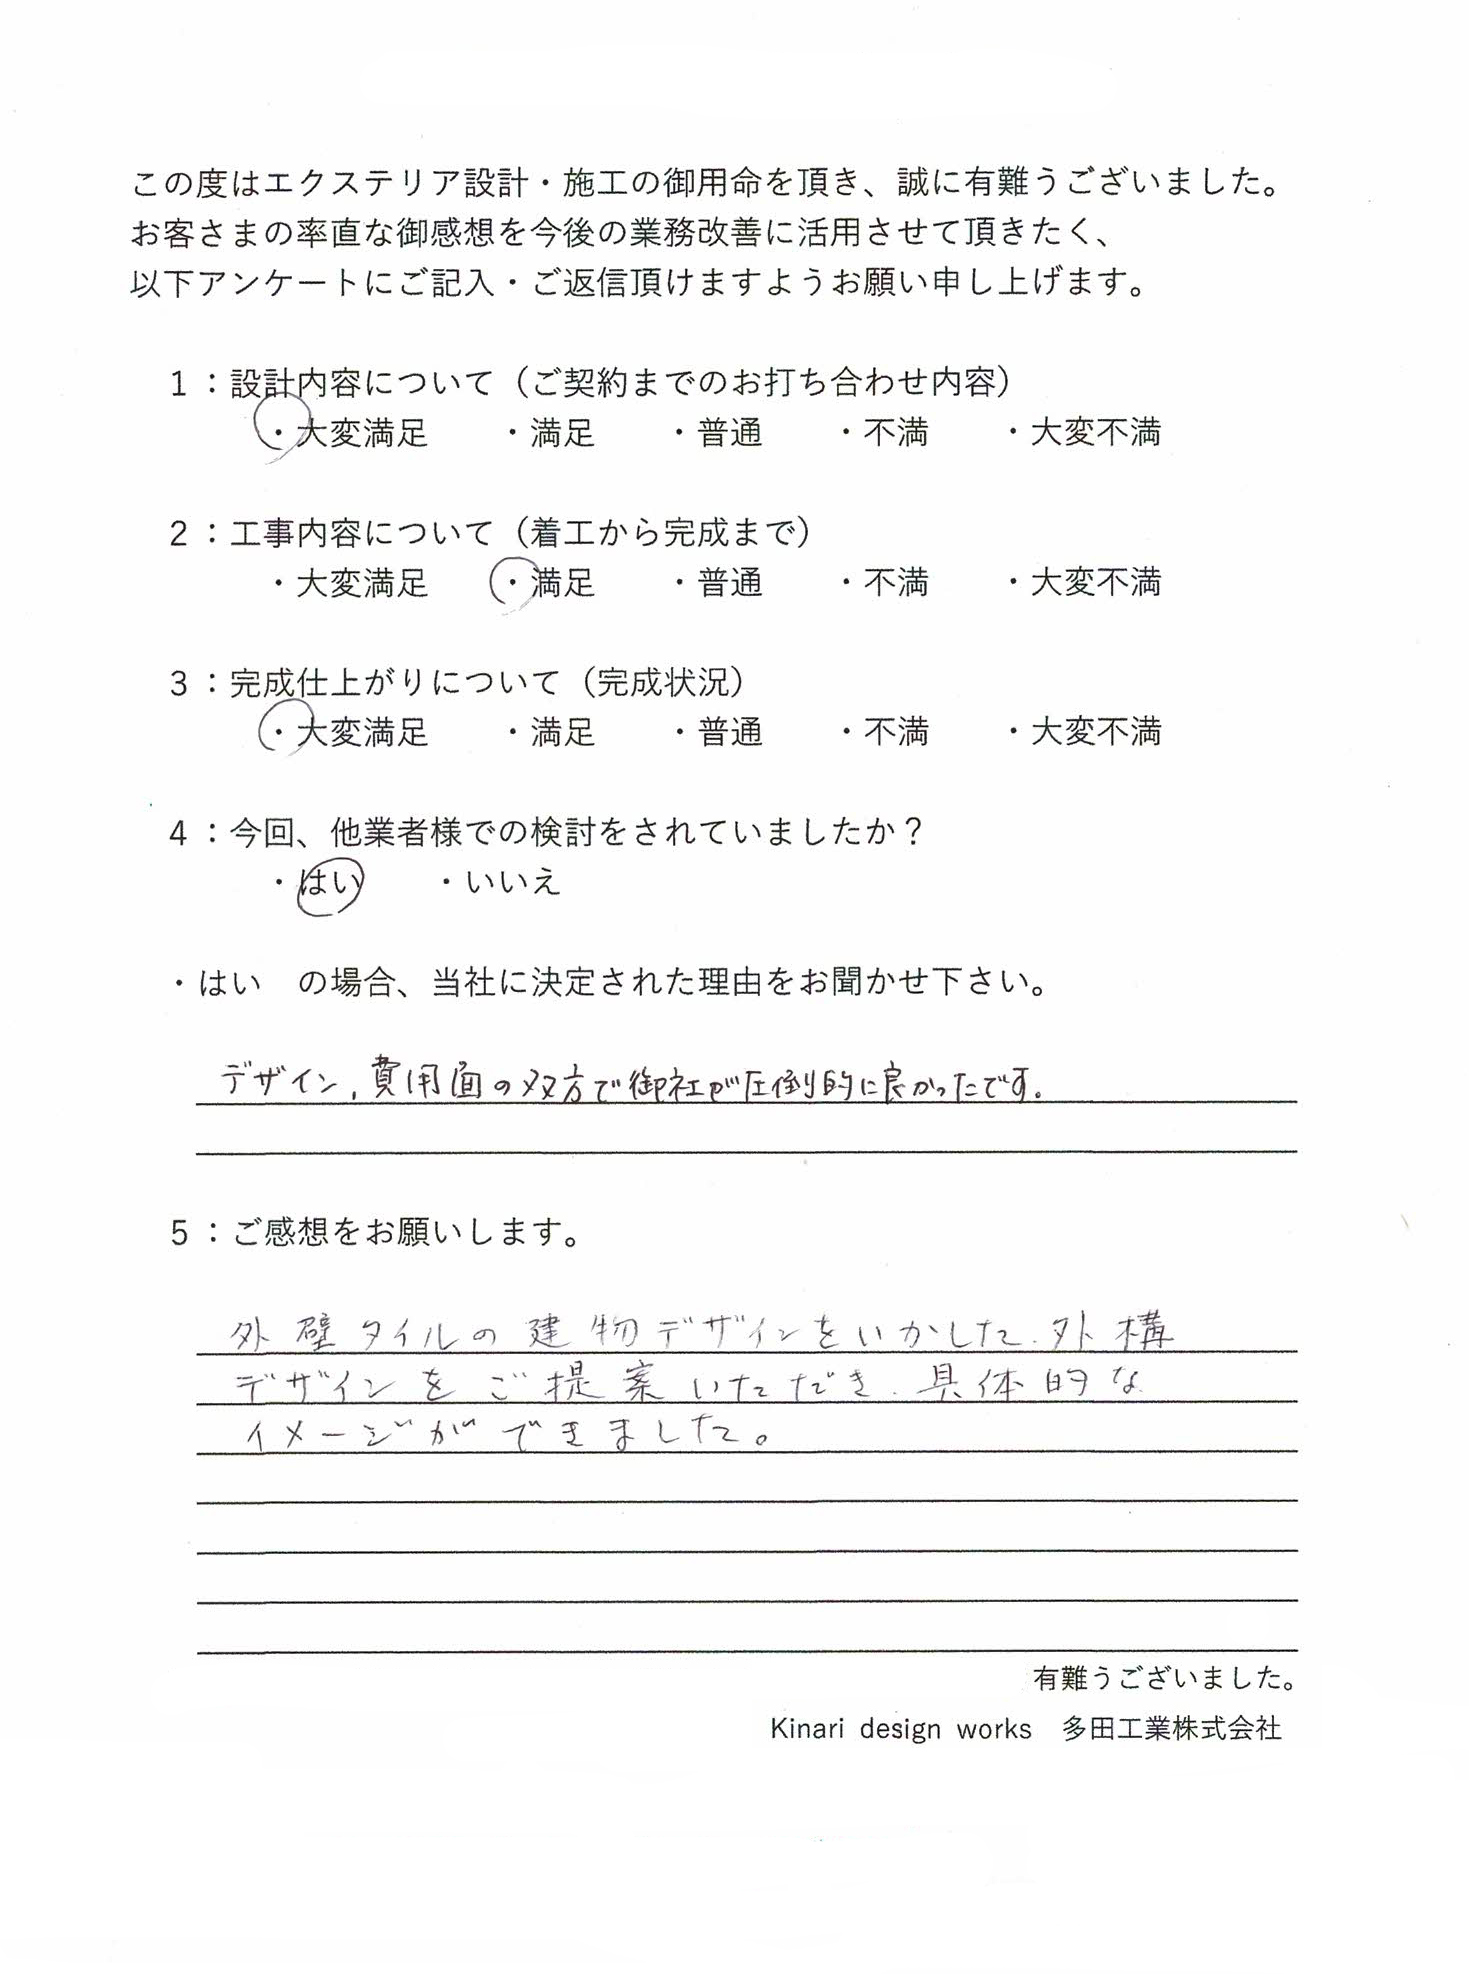 この度はエクステリア設計・施工の御用命を頂き、誠に有難うございました。
お客さまの率直な御感想を今後の業務改善に活用させて頂きたく、
以下アンケートにご記入・ご返信頂けますようお願い申し上げます。
1：設計内容について（ご契約までのお打ち合わせ内容）
・大変満足　・満足　・普通　・不満　・大変不満
2：工事内容について（着工から完成まで）
・大変満足　・満足　・普通　・不満　・大変不満
3：完成仕上がりについて（完成状況）
・大変満足　・満足　・普通　・不満　・大変不満
4：今回、他業者様での検討をされていましたか？
・はい　・いいえ
・はい　の場合、当社に決定された理由をお聞かせ下さい。
デザイン、費用面の双方で御社が圧倒的に良かったです。
5：ご感想をお願いします。
外壁タイルの建物デザインをいかした、外構
デザインをご提案いただき、具体的な
イメージができました。
有難うございました。
Kinari design works　多田工業株式会社